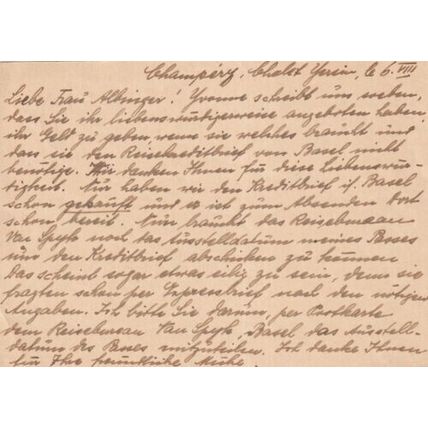 Champéry, Chalet Yvein, le 6. VIII
Liebe Frau Albinger! Yvonne scheibt uns soeben,
dass Sie ihr liebenswürdigerweise angeboten haben
ihr Geld zu geben wenn sie welches braucht und
dass sie den Reisekreditbrief von Basel nicht
benötige. Wir danken Ihnen für diese Liebenswür-
digkeit. Nur haben wir den Kreditbrief i/. Basel
schon gekauft und es ist zum Absenden dort
schon bereit. Nun braucht das Reisebureau
Van Spyk noch das Ausstelldatum meines Passes
uns den Kreditbrief abschicken zu können
Das scheint sogar etwas eilig zu sein, denn sie
fragten schon per Expressbrief nach den nötigen
Angaben. Ich bitte Sie darum, per Postkarte
dem Reisebureau Van Spyk, Basel das Ausstell-
datum des Passes mitzuteilen. Ich danke Ihnen
für Ihre freundliche Mühe.